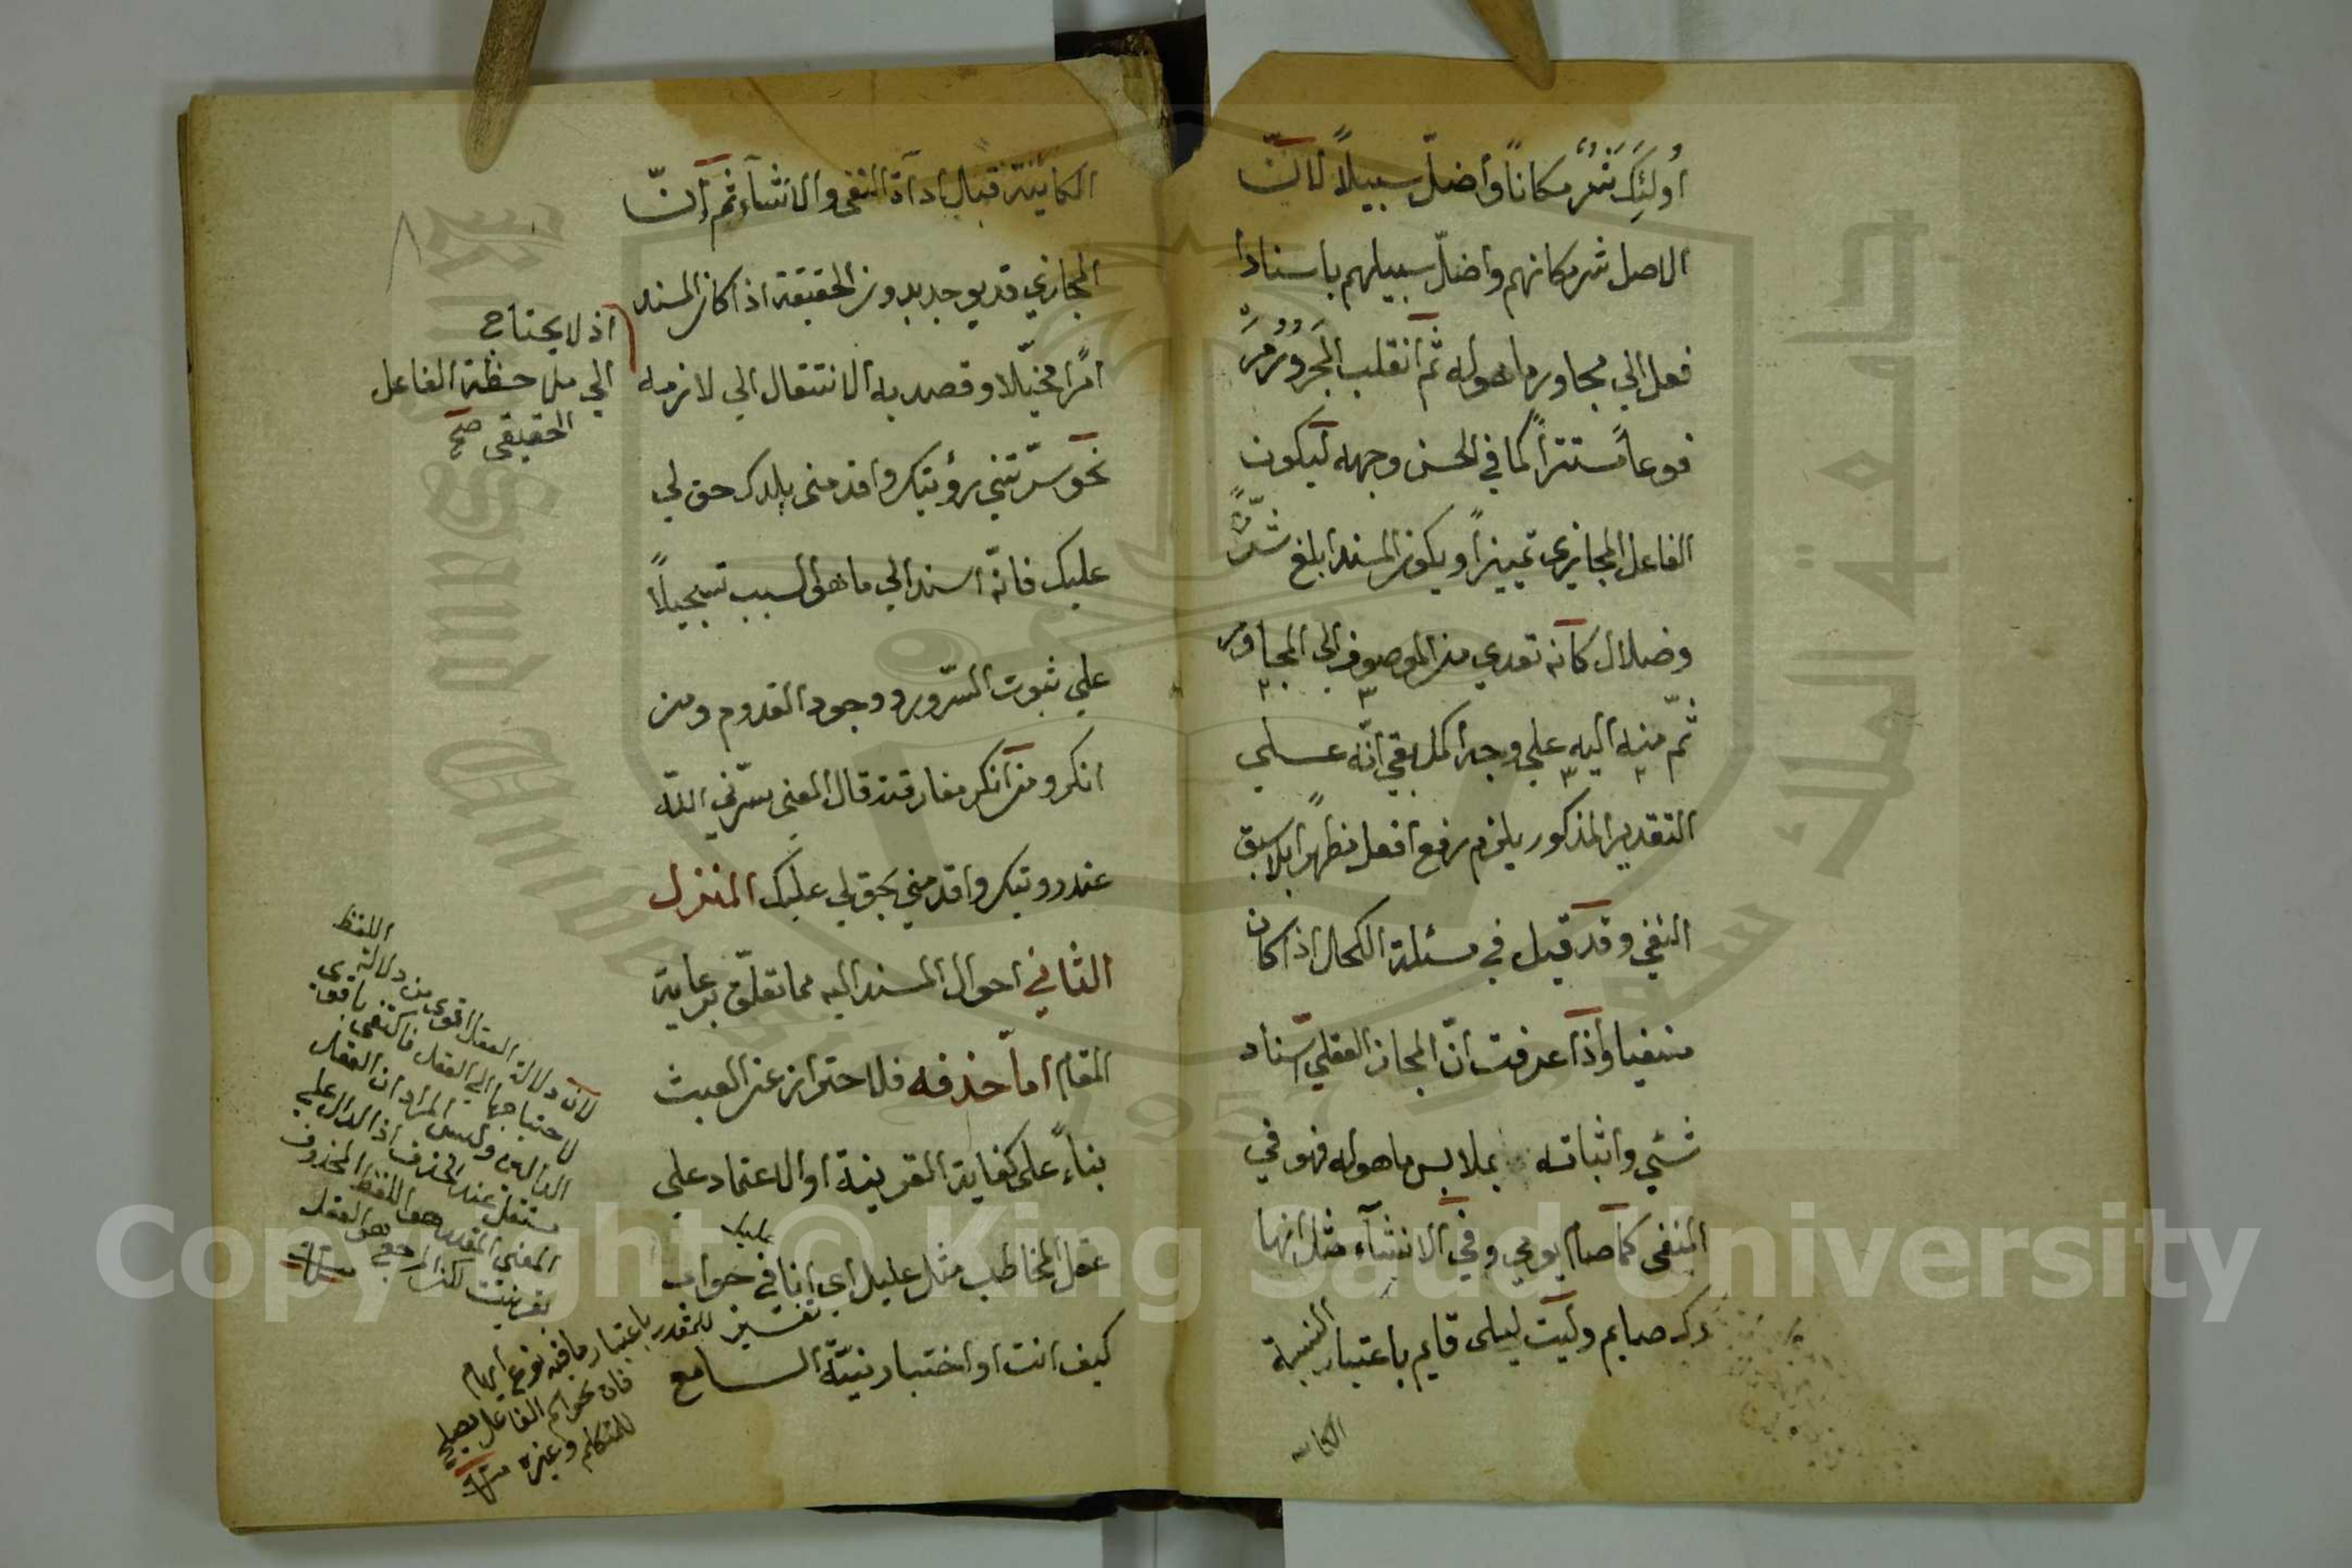 اولئك شر مكاناً واضلّ سبيلاً لانّ
الاصل شر مكانهم واضلّ سبيلهم باسناد
فعل الي مجاور ما هو له ثم انقلب المجرور مر
فوعاً مستتراً كما في الحسن وجهه ليكون
الفاعل المجازي تمييزاً ويكون المسند ابلغ شرّ
وضلال كانه تعدي من الموصوف الى المجاور
ثمّ منه اليه علي وجه اكمل بقي انّه علي
التقدير المذكور يلزم رفع افعل مظهراً بلا سبق
النفي وقد قيل في مسئلة الكحال اذا كان
منفيا واذا عرفت انّ المجاز العقلي اسناد
شئي واثباته بملابس ما هو له فهو في
المنفى كما صام يومي وفي الانشآء مثل انها
رك صايم وليت ليلى قايم باعتبار النسبة
الكا
الكائنة قبل اداة النفى والانشآء ثم انّ
المجازي قد يوجد بدون الحقيقة اذا كان المسند
امرًا مخيّلا وقصد به الانتقال الي لازمه
نحو سرّتني رؤيتك واقدمنى بلدك حق لي
عليك فانّه اسند الي ما هو السبب تسجيلاً
علي ثبوت السّرور ووجود القدوم ومن
انكر ومن انكر مفارقته قال المعنى سرّني اللّه
عند رويتك واقدمني بحق لي عليك المنزل
الثاني احوال المسند اليه مما تعلّق برعاية
المقام امّا حذفه فلاحتراز عن العبث
بناءً على كفاية القرينة او الاعتماد علي
عقل المخاطب مثل عليل اي انا في جواب
كيف انت او اختبار نيّة السامع
اذ لا يحتاج
الي ملاحظة الفاعل
الحقيقى صح
لان دلالة العقل اقوى من دلالة اللفظ
لاحتياجها الي العقل فاكتفى باقوى
الدالين وليس المراد ان العقل
مستقل عند الحذف اذ الدال علي
المعنى المقدر هو اللفظ المحذوف
بقرينة لكن المرجع هو العقل
عليك
تفسير للمقدر باعتبار ما فيه نوع ابهام
فان نحو اسم الفاعل يصلح
للمتكلم وغيره
Copyright © King Saud University
1957